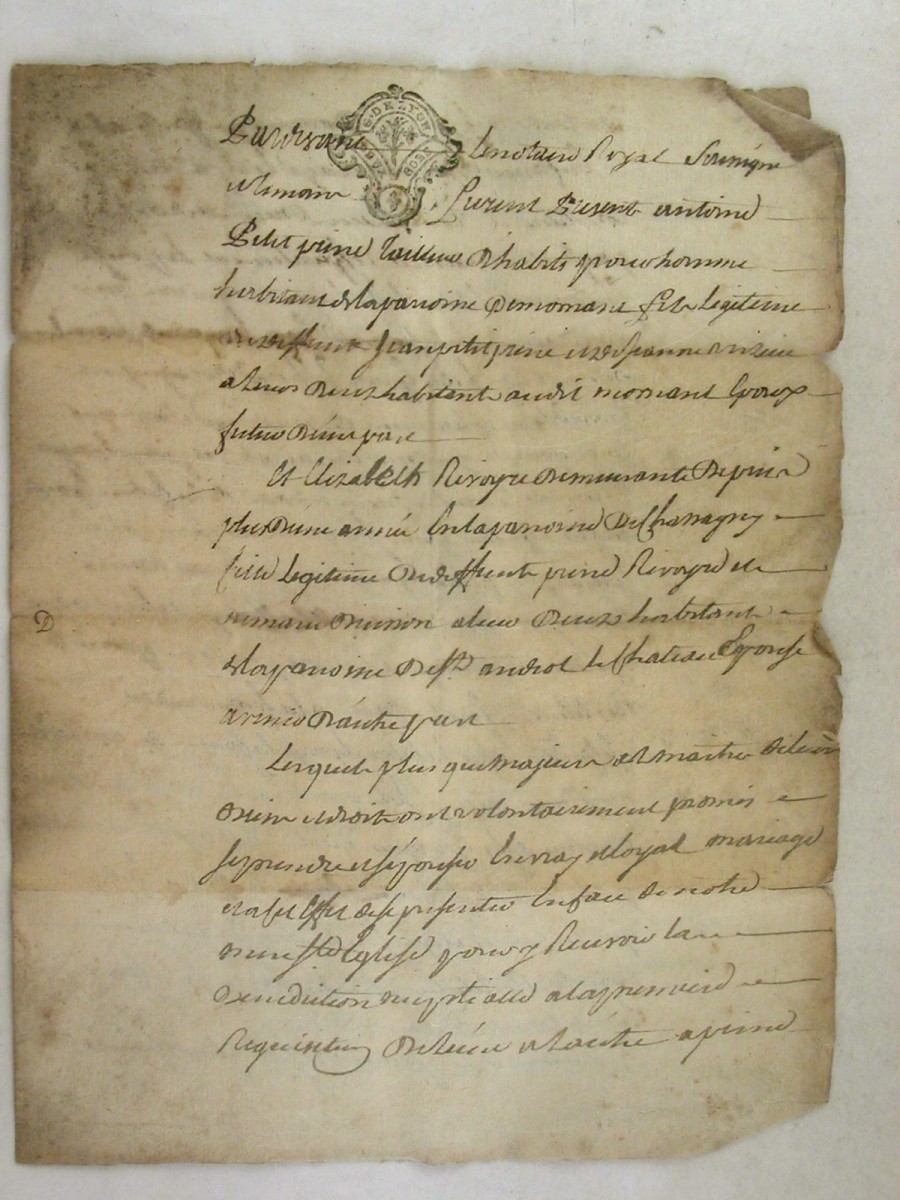 G. DE LYON
Pardevant le notaire Royal Soussigné
et temoins furent Present antoine
Petit pierre Tailleur d'habits pour homme
habitant de la parroisse de mornant fils legitime
de deffunt Jean petit pierre et de Jeanne
a leurs deux habitants audit mornant Epoux
futur d'une part
Et Elizabeth Rivoyre demeurante depuis
plus d'une année En la parroisse de Chassagny
fille legitime de deffunt pierre Rivoyre et
a leur deux habitant
de la parroisse de St andeol le Chateau Epouse
avenir d'autre part
Lesquels plus que majeurs et maitres de leurs
biens et droits ont volontairement promis
se prendre et s'épouser En vray et loyal mariage
et a cet effet de se presenter En face de notre
mere Ste Eglise pour y Recevoir la
benediction nuptialle a la premiere
Requisition de l'un a l'autre a peine
D